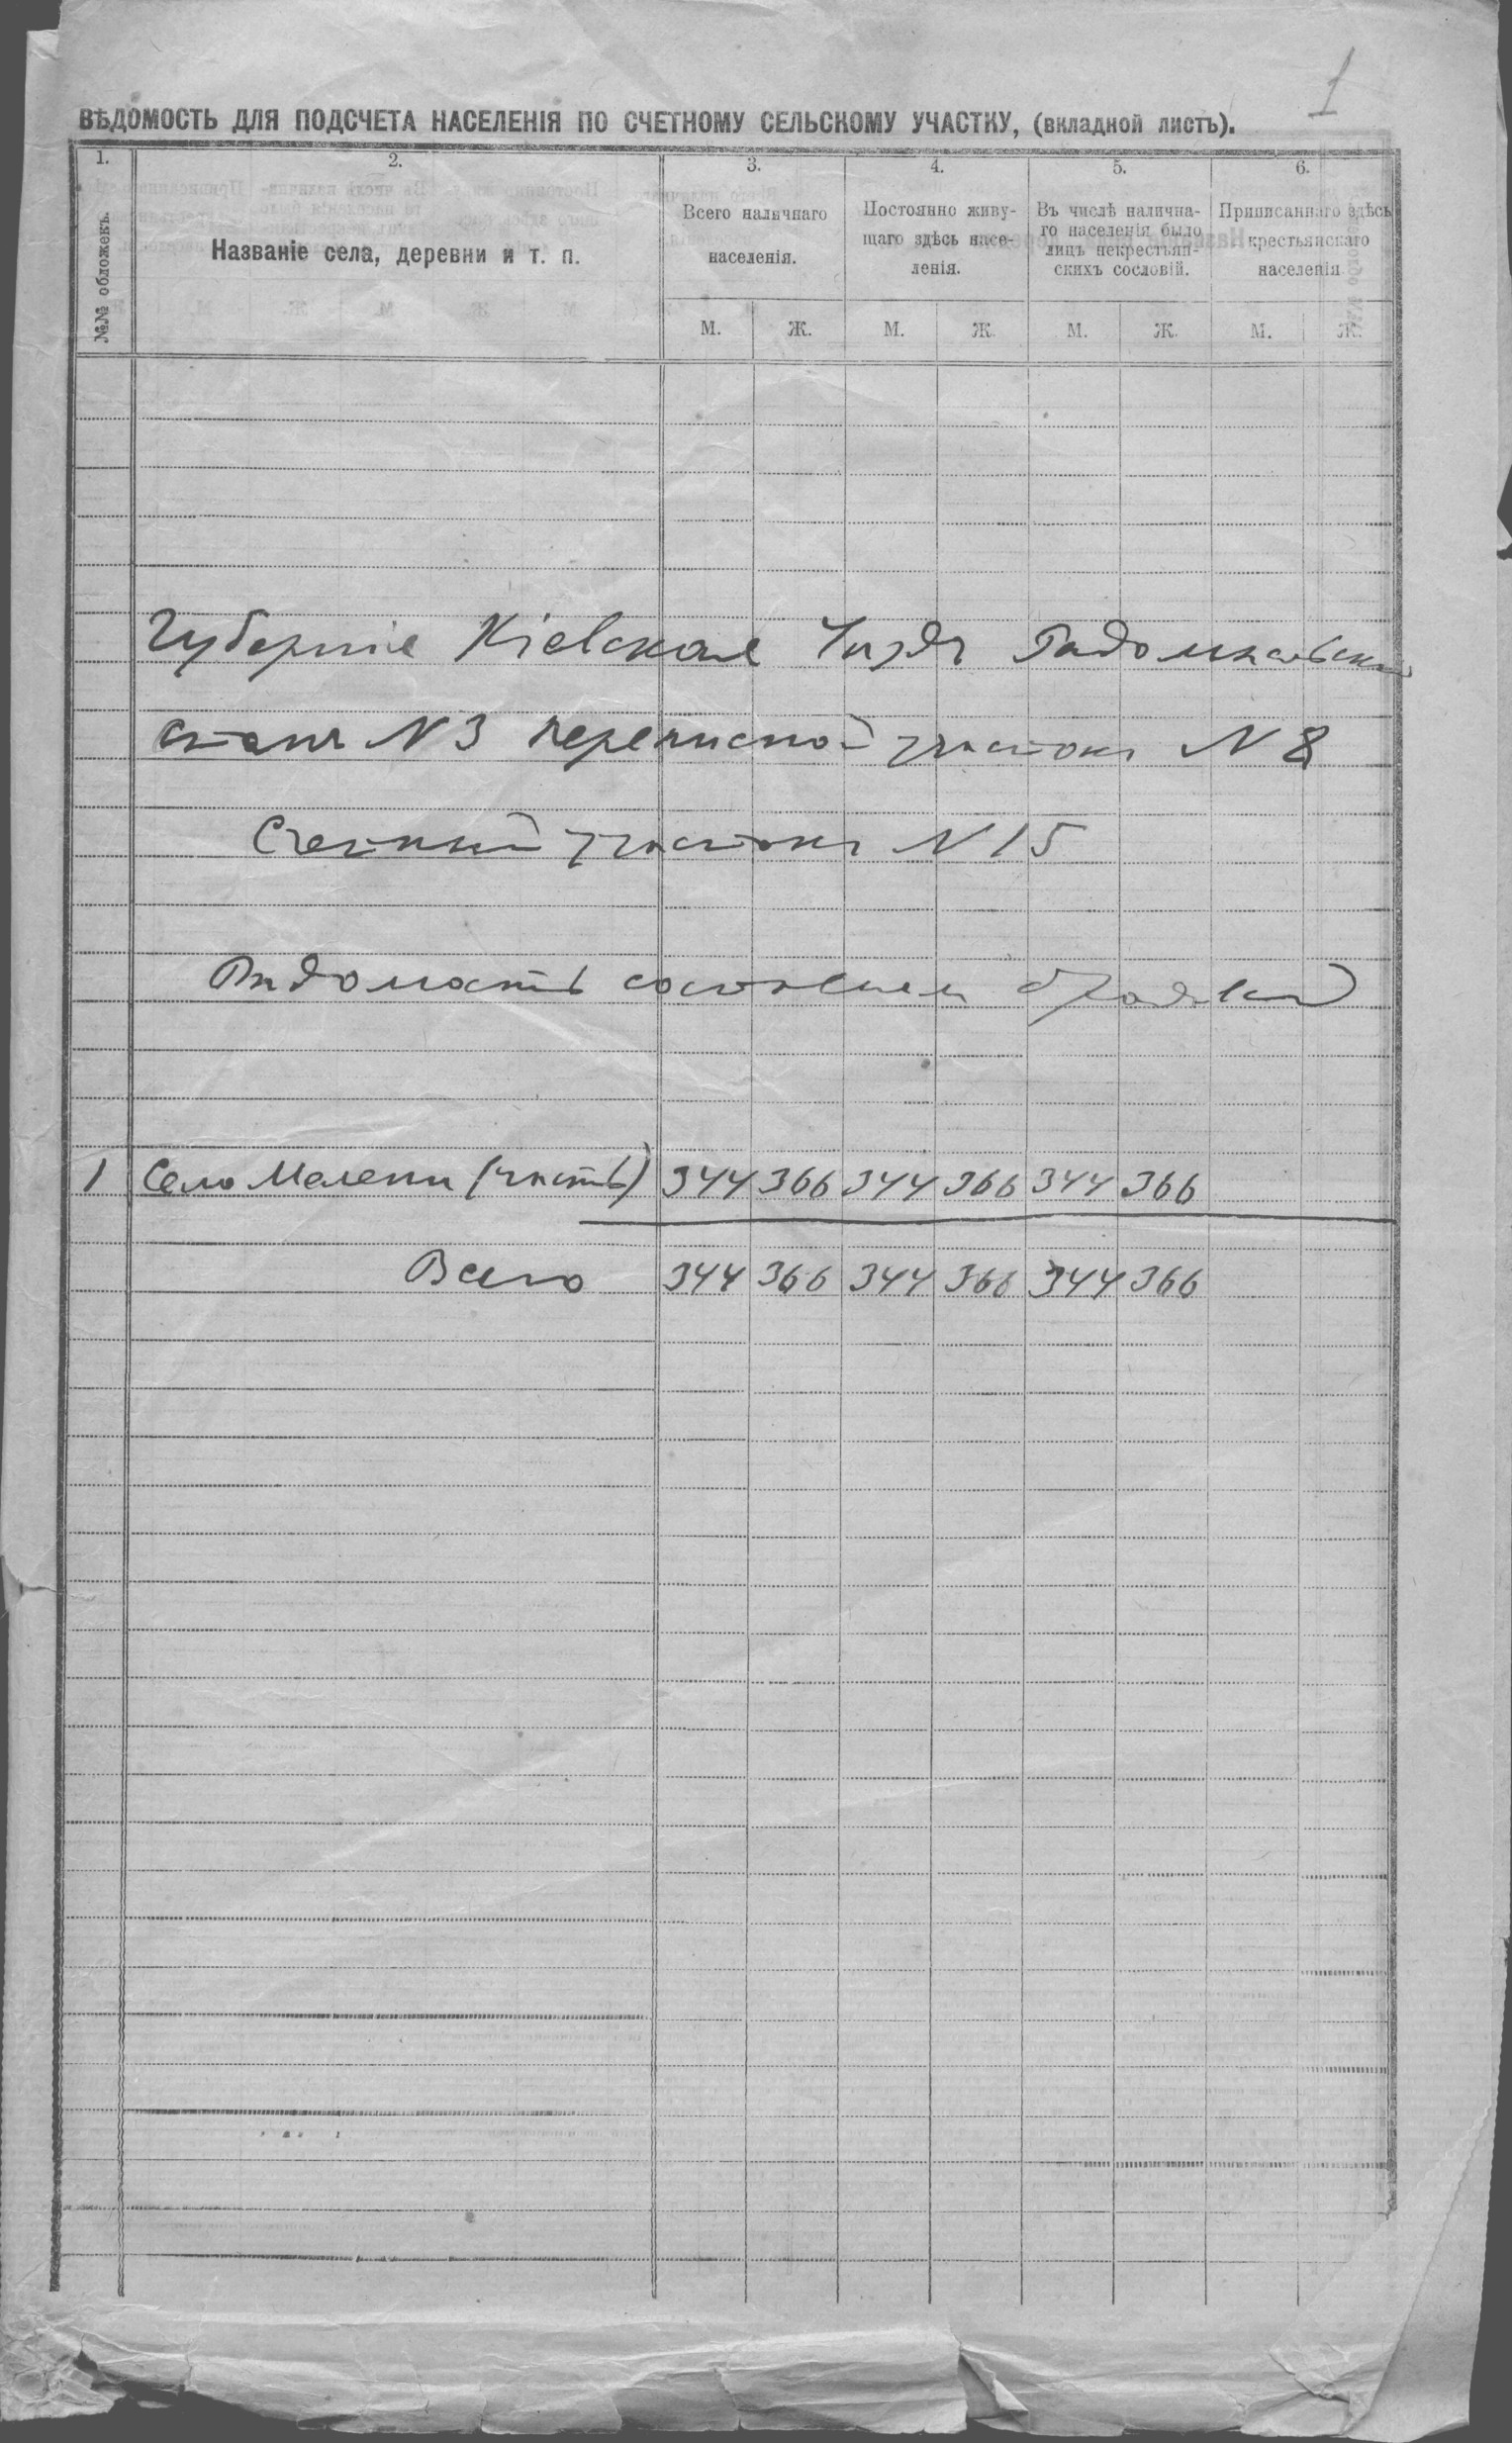 1
ВѢДОМОСТЬ ДЛЯ ПОДСЧЕТА НАСЕЛЕНІЯ ПО СЧЕТНОМУ СЕЛЬСКОМУ УЧАСТКУ, (вкладной листъ).
1. 2. 3. 4. 5. 6.
№№ обложекъ.
Названіе села, деревни и т. п.
Всего наличнаго
населенія.
Постоянно живу-
щаго здѣсь насе-
ленія.
Въ числѣ налична-
го населенія было
лицъ некрестьян-
скихъ сословій.
Приписаннаго здѣсь
крестьянскаго
населенія
М. Ж. М. Ж. М. Ж. М. Ж.
Губернія Кіевская Уѣздъ Радомысльскій
станъ N 3 переписной участокъ N 8
Счетный участокъ N 15
Вѣдомость
1 Село (часть) 344 366 344 366 344 366
Всего 344 366 344 366 344 366